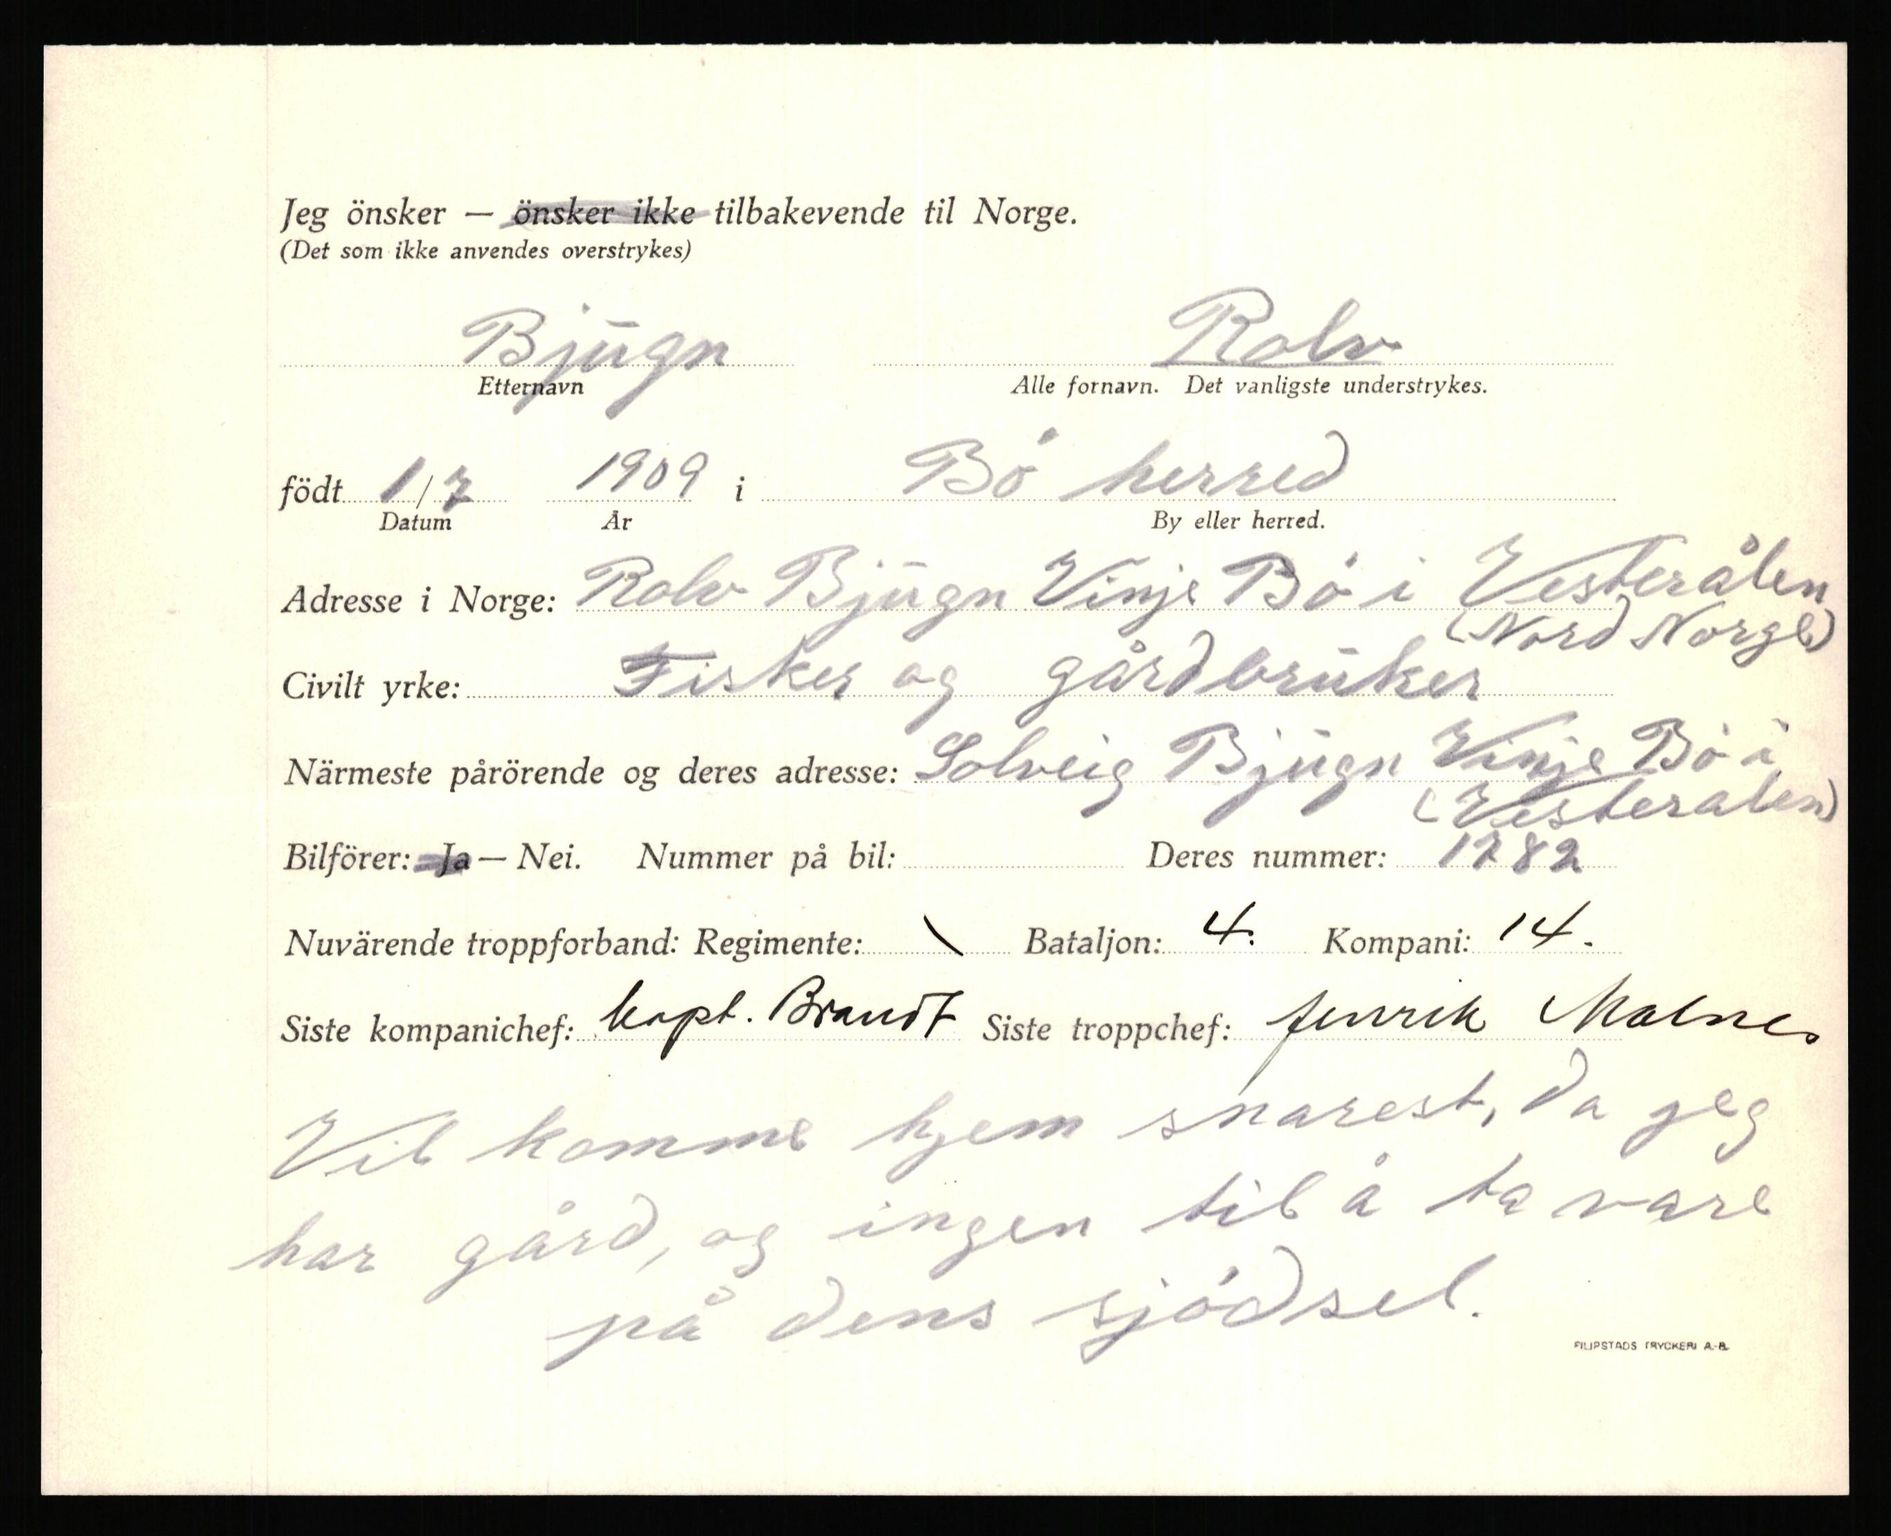 Jeg önsker — önsker ikke tilbakevende til Norge.
(Det som ikke anvendes overstrykes)
Bjugn Rolv
Etternavn Alle fornavn. Det vanligste understrykes.
födt 1/7 1909 i Bó herred
Datum År By eller herred.
Adresse i Norge: Rolv Bjugn Vinje Bó i Vesterålen
(Nord Norge)
Civilt yrke: Fisker og gårdbruker
Närmeste pårörende og deres adresse: Solveig Bjugn Vinje Bó i
(Vesterålen)
Bilförer: Ja — Nei. Nummer på bil: Deres nummer: 1282
Nuvärende troppforband: Regimente: \ Bataljon: 4. Kompani: 14.
Siste kompanichef: kapt. Brandt Siste troppchef: Henrik Malnes
Vil komme hjem snarest, da jeg
har gård, og ingen til å ta vare
på dens sjódsel.
FILIPSTADS TRYCKERI A.-B.